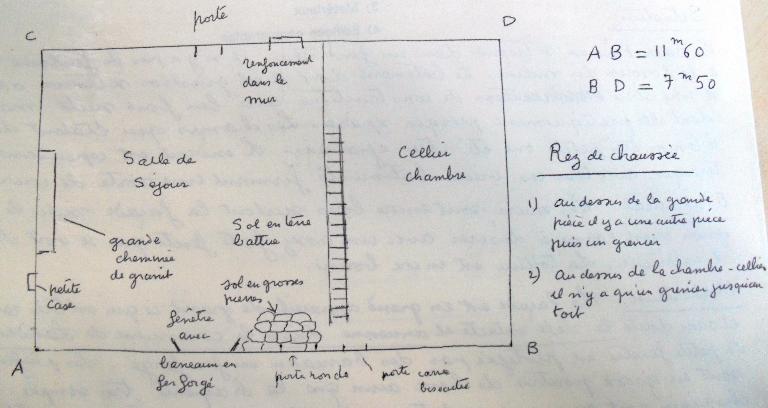 porte
C
D
renfoncement
dans le
mur
Salle de
Séjour
Cellier
chambre
grande
cheminée
de granit
Sol en terre
battue
petite
case
sol en grosses
pierres
fenêtre
avec
barreaux en
fer forgé
A
B
porte ronde
porte carrée
biseautée
A B = 11m60
B D = 7m50
Rez de chaussée
1) au dessus de la grande
pièce il y a une autre pièce
puis un grenier
2) au dessus de la chambre-cellier
il n'y a qu'un grenier jusqu'au
toit